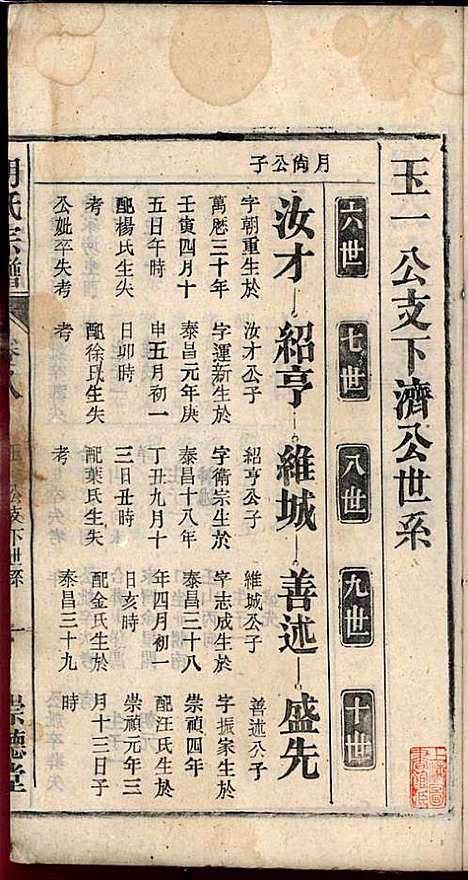 玉一公支下濟公世系
六世
七世
八世
九世
十世
月尚公子
汝才
字朝重生於
萬曆三十年
壬寅四月十
五日午時
配楊氏生失
考
公妣卒失考
汝才公子
紹亨
字運新生於
泰昌元年庚
申五月初一
日卯時
配徐氏生失
考
紹亨公子
維城
字衛宗生於
泰昌十八年
丁丑九月十
三日丑時
配葉氏生失
考
維城公子
善述
字志成生於
泰昌三十八
年四月初一
日亥時
配金氏生於
泰昌三十九
時
善述公子
盛先
字振家生於
崇禎四年
配汪氏生於
崇禎元年三
月十三日子
時
氏宗譜
卷之八
玉一公支下世系
一
崇德堂